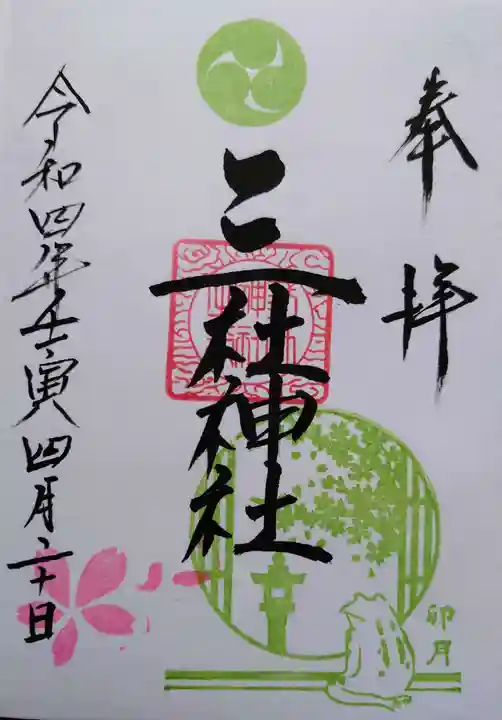 奉拝
三社神社
令和四年壬寅四月二十日
卯月